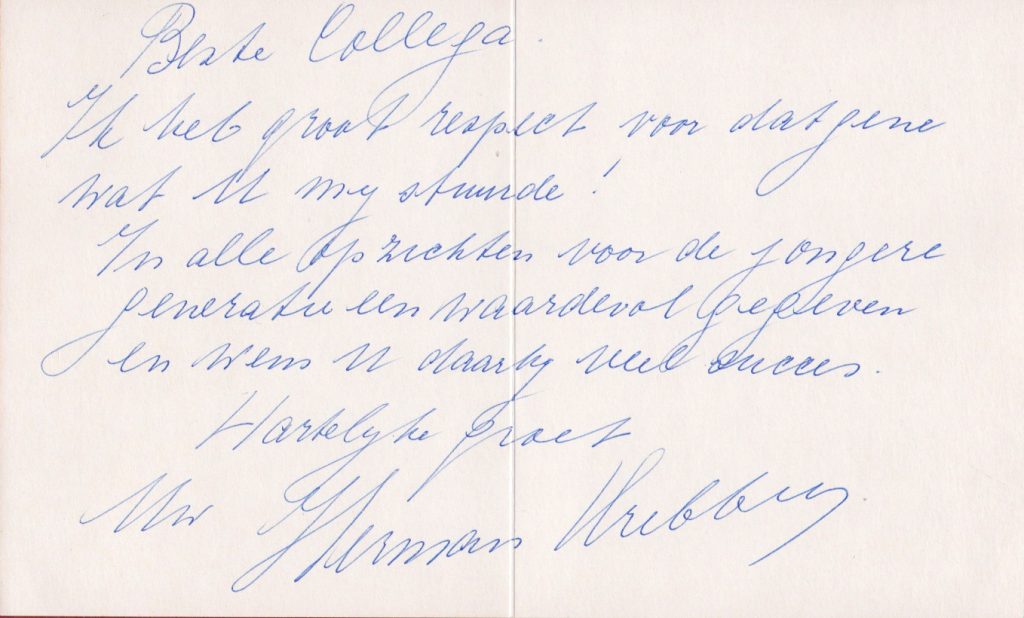 Beste Collega.
Ik heb groot respect voor datgene
wat U my stuurde!
In alle opzichten voor de jongere
generatie een waardevol gegeven
en wens U daarby veel succes.
Hartelyke groet
Uw Herman